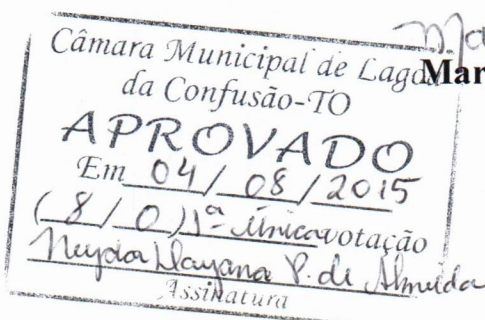 Câmara Municipal de Lagoa
Mar
da Confusão-TO
APROVADO
Em 04/08/2015
(8/0) 1ª única votação
P. de Almeida
Assinatura